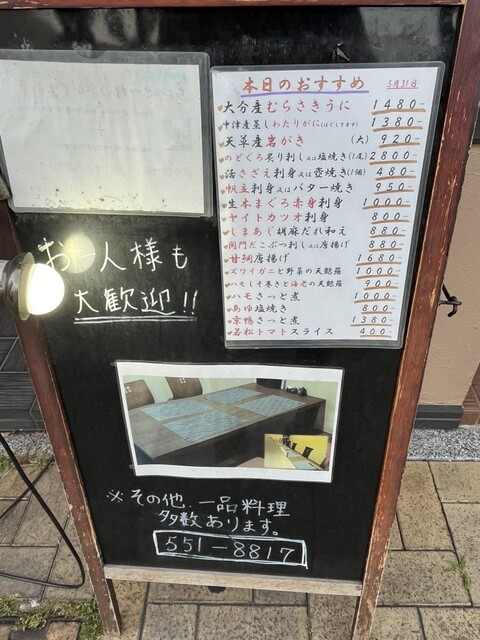 本日のおすすめ 5月31日
大分産むらさきうに 1480-
中津産蒸しわたりがに(ほぐしてます) 1380-
天草産岩がき (大) 920-
のどぐろ炙り刺し又は塩焼き(1尾) 2800-
活さざえ刺身又は壺焼き(1個) 480-
帆立刺身又はバター焼き 950-
生本まぐろ赤身刺身 1000-
ヤイトカツオ刺身 800-
しまあじ胡麻だれ和え 880-
関門だこぶつ刺し又は唐揚げ 880-
甘鯛唐揚げ 1680-
ズワイガニと野菜の天麩羅 1000-
ハモしそ巻きと海老の天麩羅 900-
ハモさっと煮 1000-
あゆ塩焼き 800-
京鴨さっと煮 1380-
若松トマトスライス 400-
お一人様も
大歓迎!!
※その他、一品料理
多数あります。
551-8817